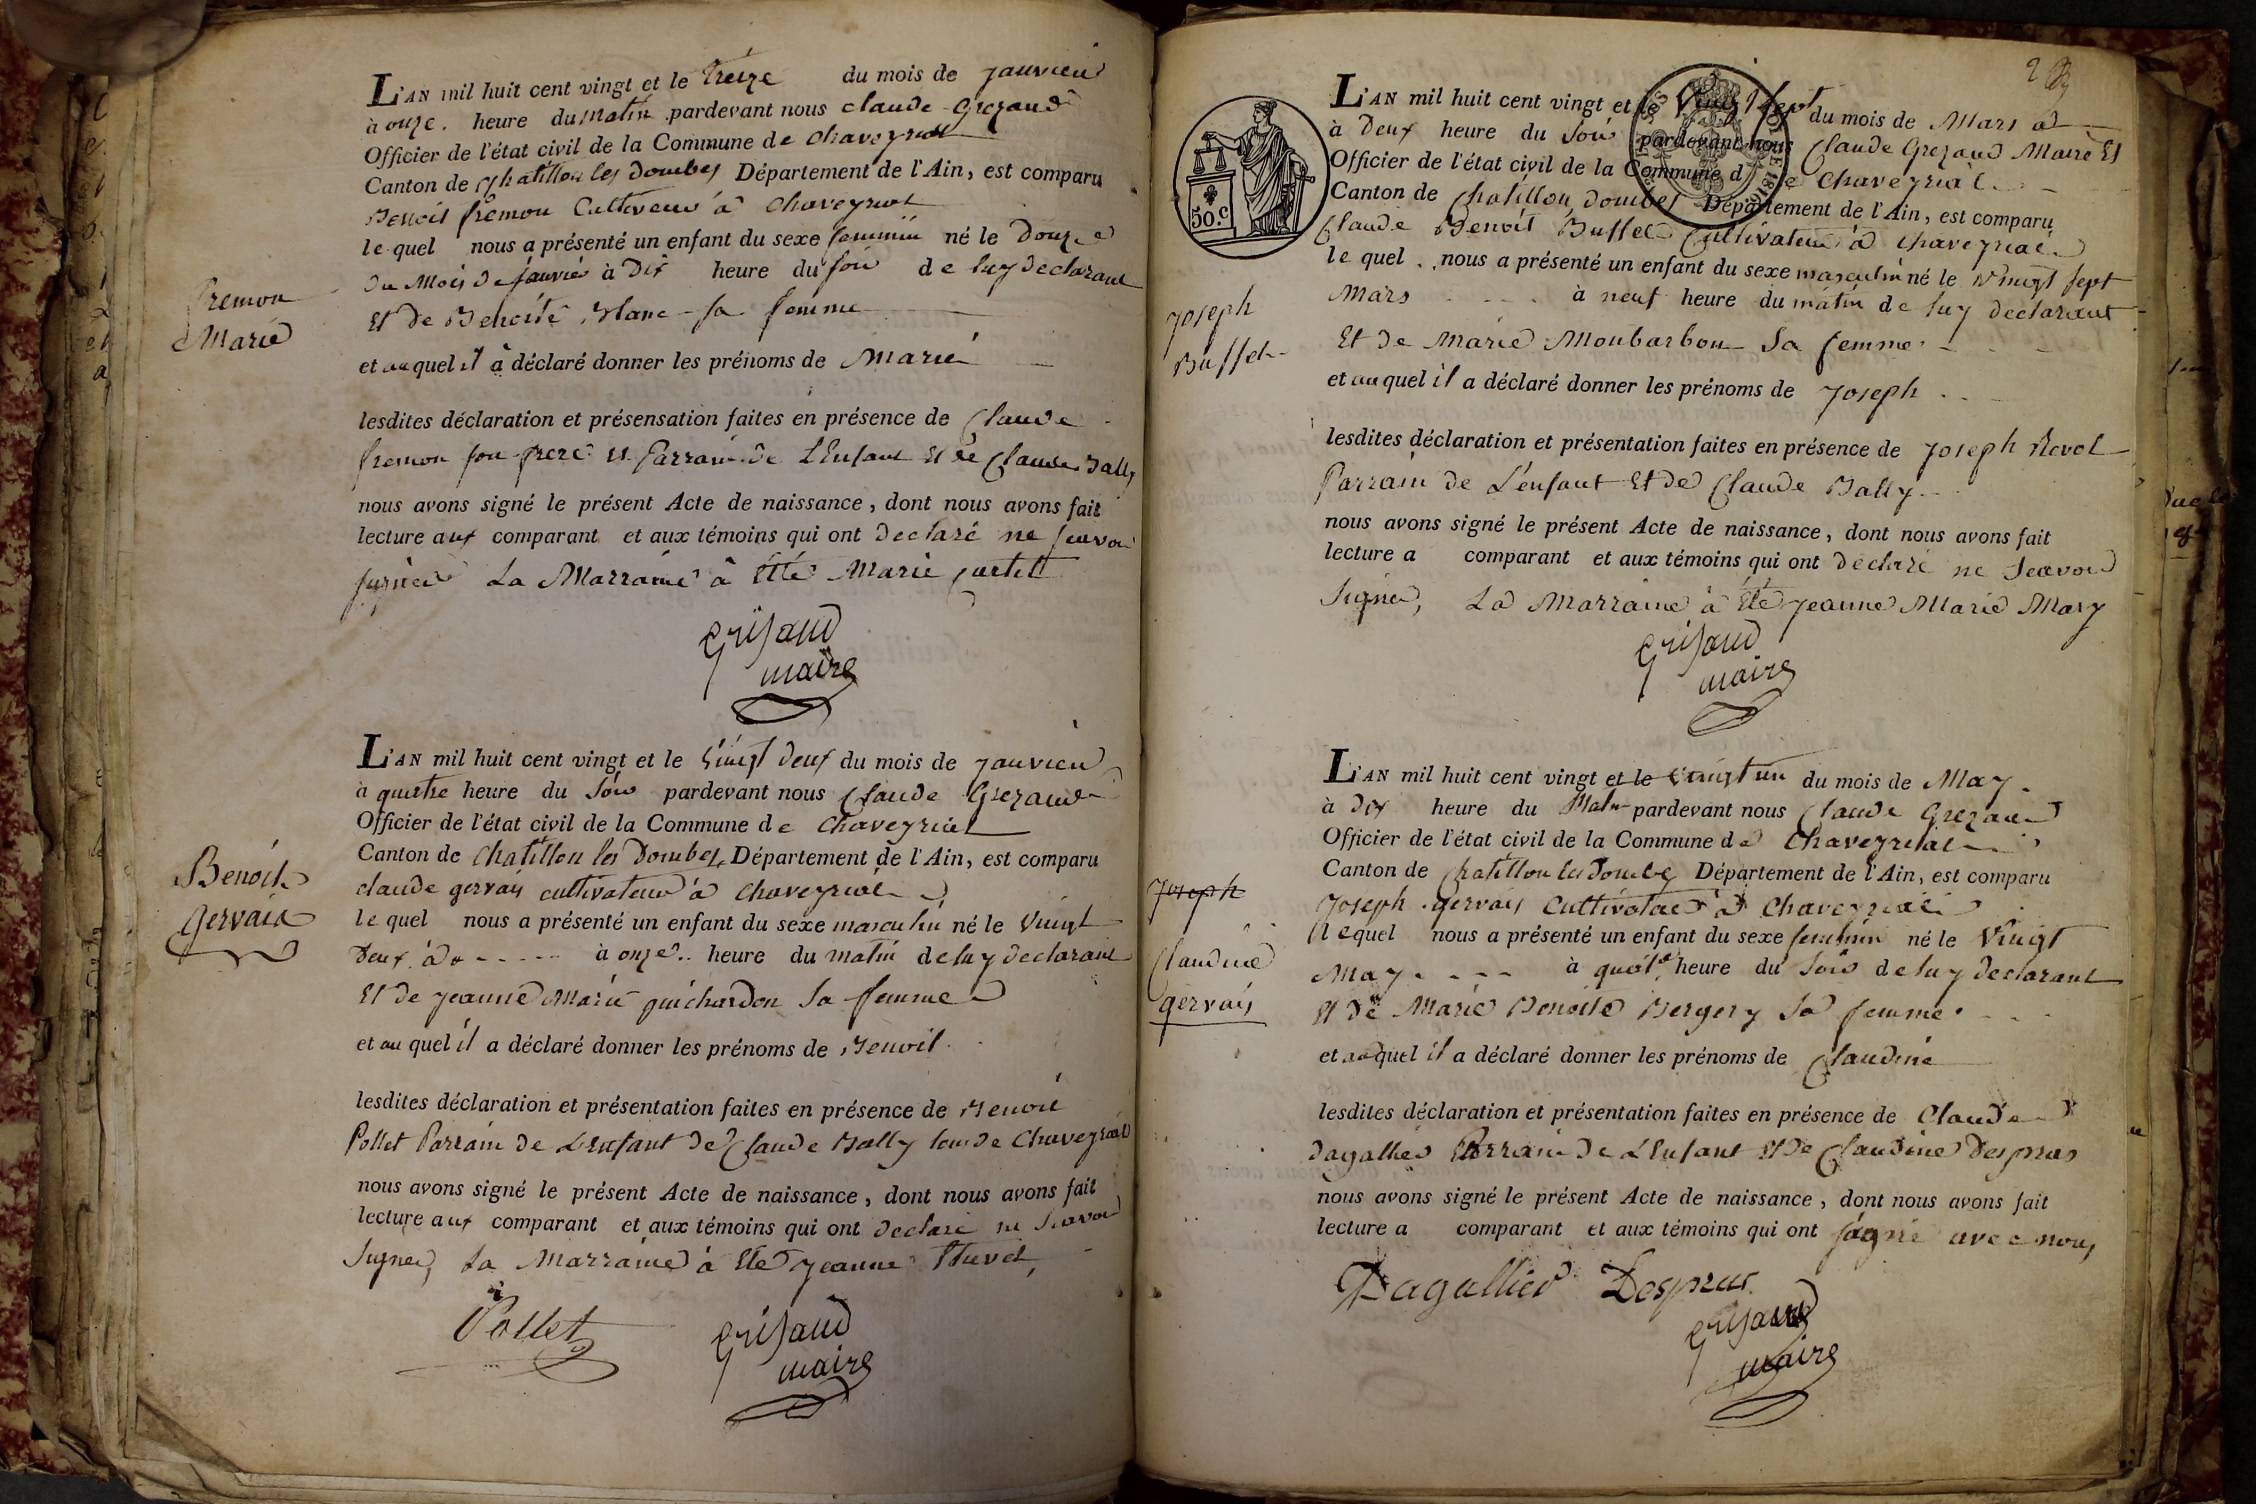 L'AN mil huit cent vingt et le treize du mois de janvier
à onze. heure du matin pardevant nous claude Grezaud
Officier de l'état civil de la Commune de chaveyriat
Canton de chatillon les Dombes Département de l'Ain, est comparu
Benoit fremon Cultiveur à chaveyriat
le quel nous a présenté un enfant du sexe feminin né le Douze
du Mois de janvier à Dix heure du soir de luy declarant
Et de Benoite Blanc sa femme
et auquel il à déclaré donner les prénoms de Marie
lesdites déclaration et présensation faites en présence de Claude
fremon son frere et Parrain de L'Enfant Et de Claude Bally
nous avons signé le présent Acte de naissance, dont nous avons fait
lecture aux comparant et aux témoins qui ont declaré ne scavoir
signer La Marraine à Etté Marie
Grisaud
maire
fremon
Marie
L'AN mil huit cent vingt et le vingt deux du mois de janvier
à quatre heure du soir pardevant nous Claude Grezaud
Officier de l'état civil de la Commune de chaveyriat
Canton de chatillon les Dombes Département de l'Ain, est comparu
claude gervais cultivateur à chaveyriat
le quel nous a présenté un enfant du sexe masculin né le vingt
Deux à onze.. heure du matin de luy declarant
Et de jeanne Marie guichardon sa femme
et au quel il a déclaré donner les prénoms de Benoit
lesdites déclaration et présentation faites en présence de Benoit
Pollet Parrain de L'Enfant de Claude Bally tous de Chaveyriat
nous avons signé le présent Acte de naissance, dont nous avons fait
lecture aux comparant et aux témoins qui ont declaré ne scavoir
signer, La Marraine à Eté jeanne
Pollet
Grisaud
maire
Benoit
gervais
2
50.c
L'AN mil huit cent vingt et le vingt sept du mois de Mars à
à Deux heure du soir pardevant nous Claude Grezaud Maire Et
Officier de l'état civil de la Commune de Chaveyriat
Canton de Chatillon Dombes Département de l'Ain, est comparu
Claude Benoit Buffet Cultivateur à chaveyriat
le quel nous a présenté un enfant du sexe masculin né le vingt sept
Mars à neuf heure du matin de luy declarant
Et de Marie Monbarbon sa femme
et au quel il a déclaré donner les prénoms de joseph
lesdites déclaration et présentation faites en présence de joseph Revol
Parrain de L'enfant Et de Claude Bally
nous avons signé le présent Acte de naissance, dont nous avons fait
lecture a comparant et aux témoins qui ont déclaré ne Scavoir
Signer, La Marraine à Eté jeanne Marie Mary
Grisaud
maire
joseph
Buffet
L'AN mil huit cent vingt et le vingt un du mois de May
à Dix heure du Matin pardevant nous Claude Grezaud
Officier de l'état civil de la Commune de Chaveyriat
Canton de Chatillon les Dombes Département de l'Ain, est comparu
joseph gervais Cultivateur à Chaveyriat
l equel nous a présenté un enfant du sexe feminin né le Vingt
May à quatre heure du soir de luy declarant
Et de Marie Benoite Bergery sa femme
et auquel il a déclaré donner les prénoms de Claudine
lesdites déclaration et présentation faites en présence de Claude
Dagallier Parrain de L'Enfant Et de Claudine Despras
nous avons signé le présent Acte de naissance, dont nous avons fait
lecture a comparant et aux témoins qui ont signé avec nous,
Dagallier Despras
Grisaud
maire
joseph
Claudine
gervais